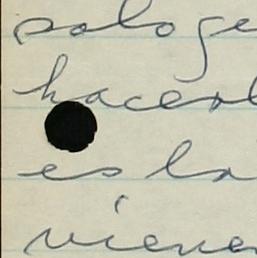 pologe
hacerl
es la
viene